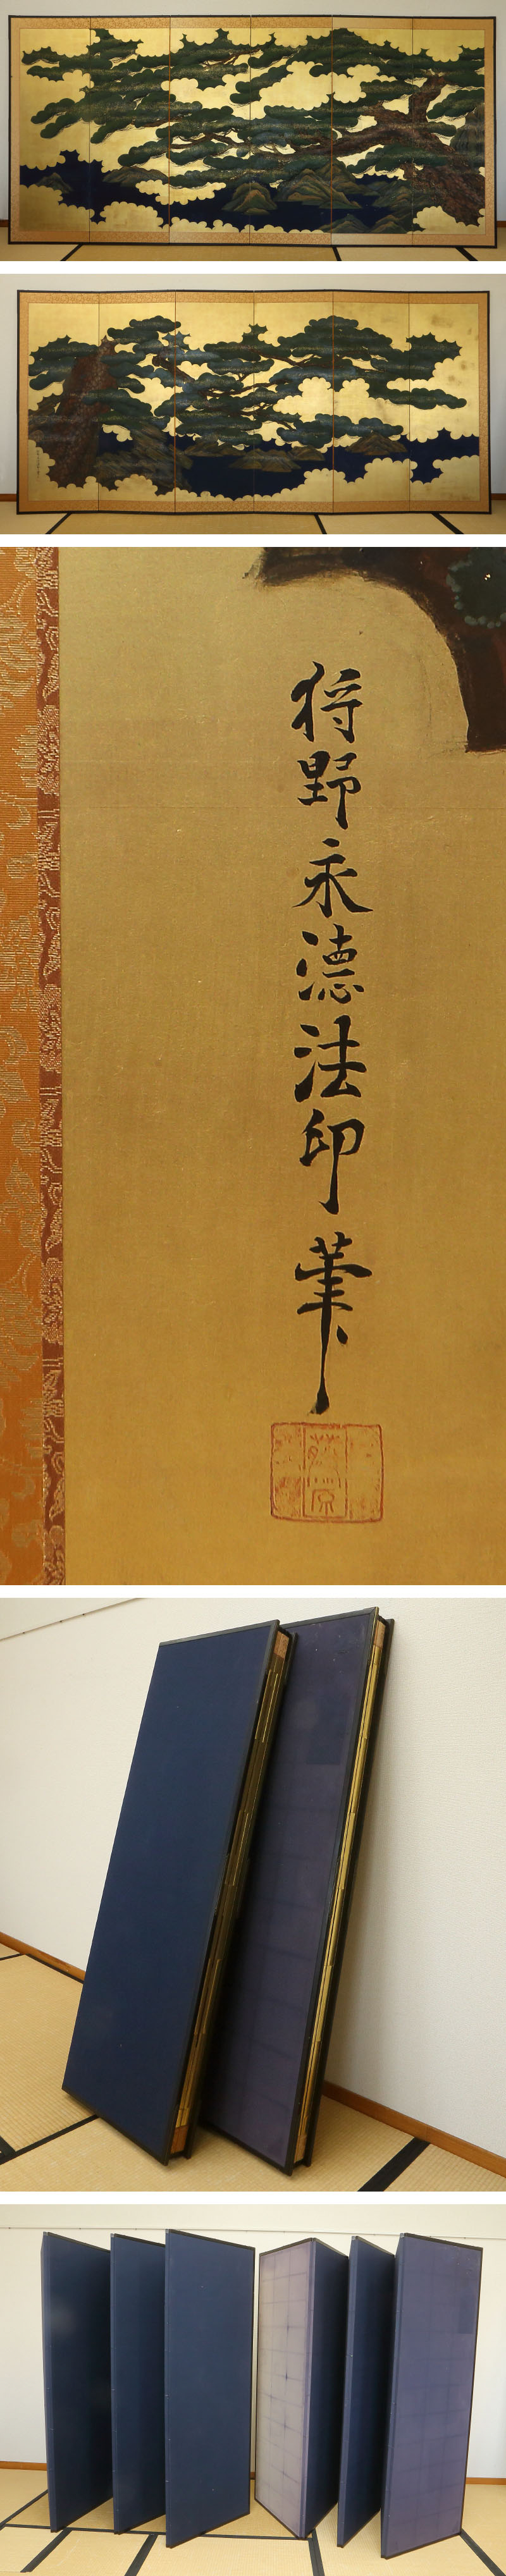 狩野永德法印筆